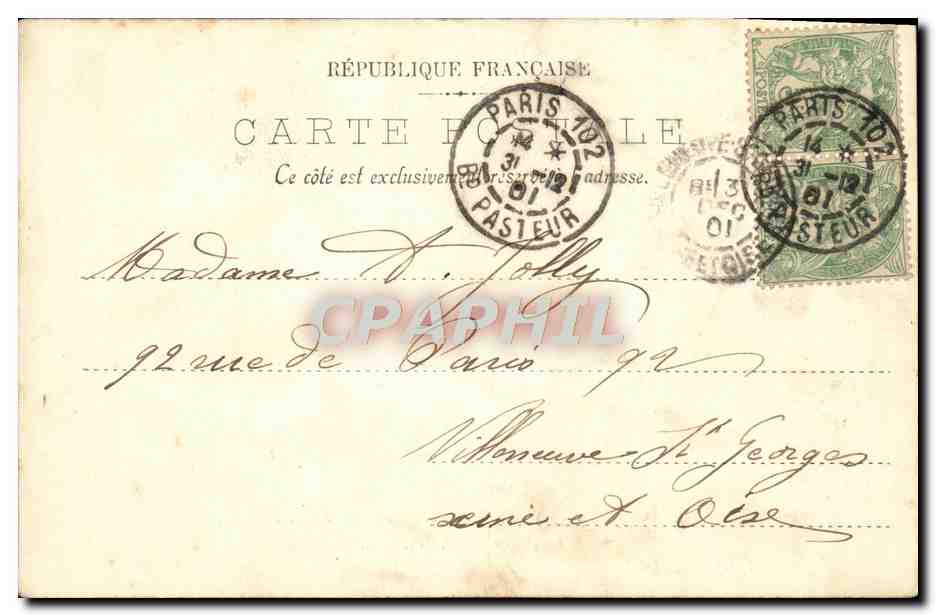 RÉPUBLIQUE FRANÇAISE
CARTE POSTALE
Ce côté est exclusivement réservé à l'adresse.
PARIS 102
14 *
31 -12
01
BD PASTEUR
PARIS 102
14 *
31 -12
01
PASTEUR
13
DEC
01
Madame A. Jolly
CPAPHIL
92 rue de Paris 92
Villeneuve St Georges
seine et Oise